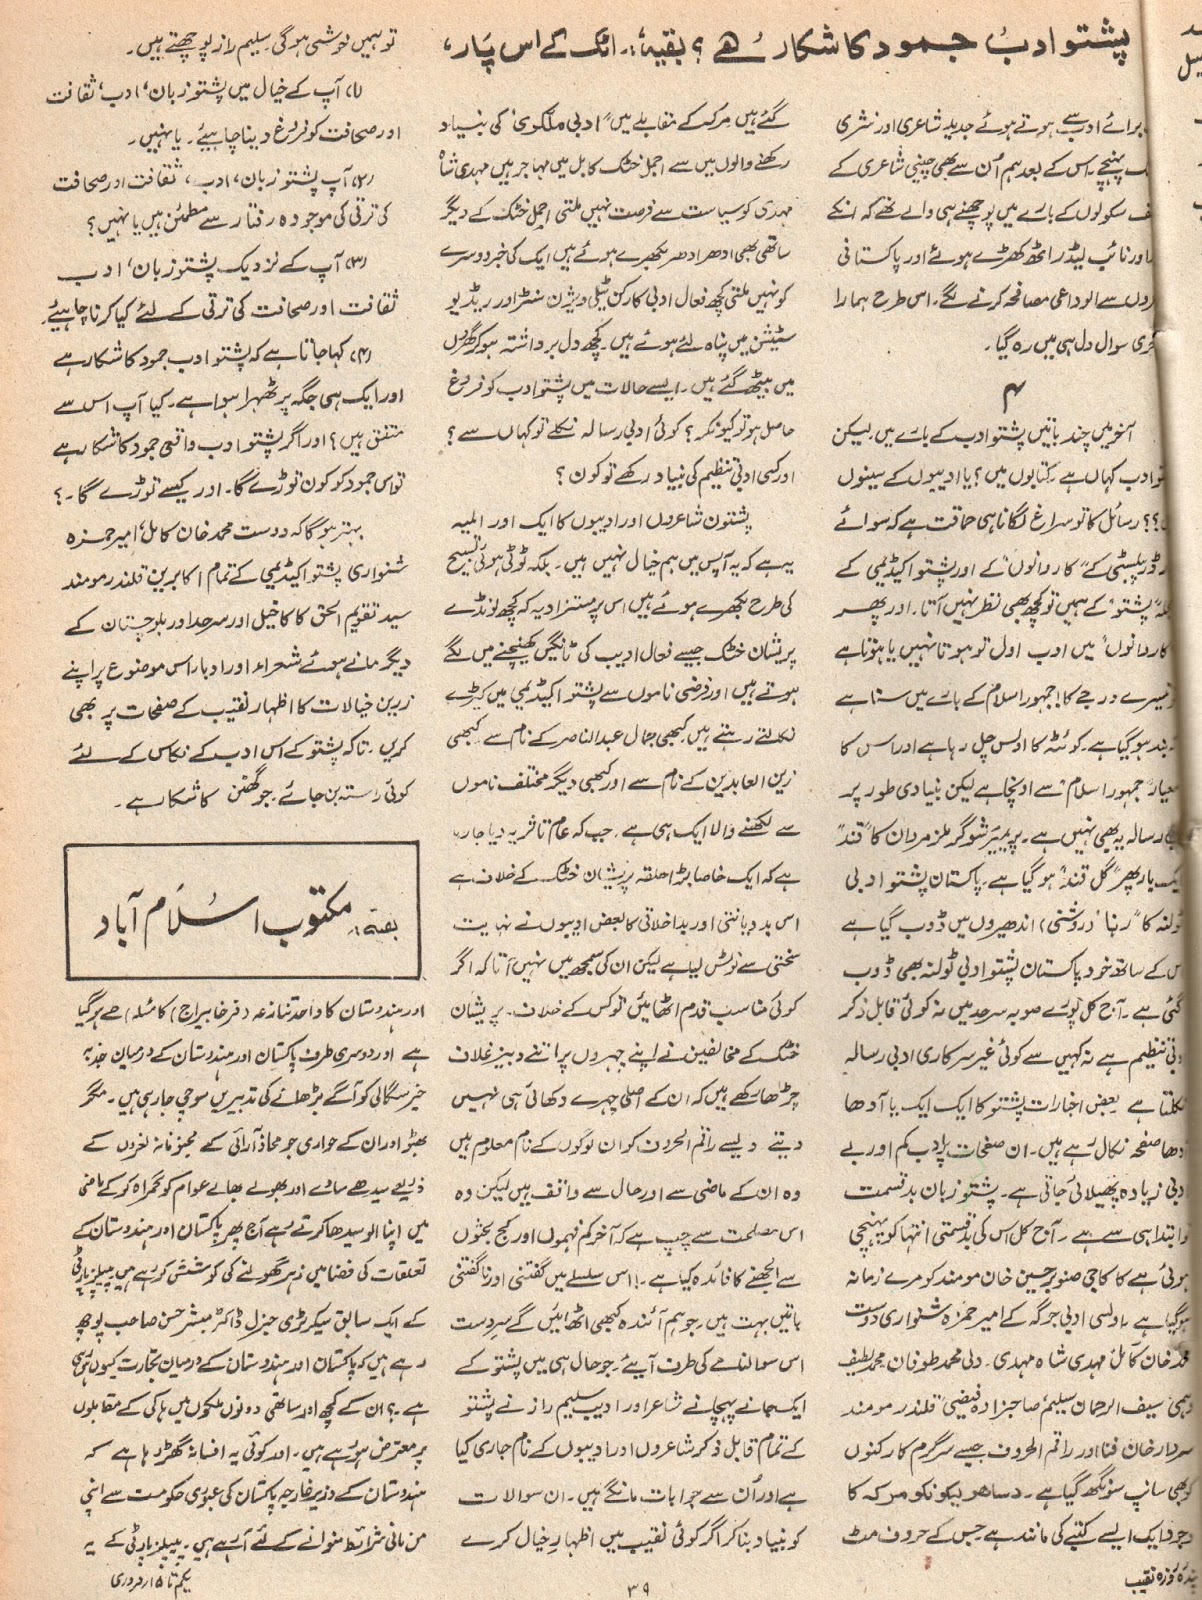 پشتو ادب جمود کا شکار ہے ؟ بقیہ:۔ اٹک کے اس پار،
برائے ادب سے ہوتے ہوئے جدید شاعری اور نثری
پہنچے۔ اس کے بعد ہم اُن سے بھی چینی شاعری کے
سکولوں کے بارے میں پوچھنے ہی والے تھے کہ انکے
اور نائب لیڈر اٹھ کھڑے ہوئے اور پاکستانی
سے الوداعی مصافحہ کرنے لگے۔ اس طرح ہمارا
سوال دل ہی میں رہ گیا۔
۴
آخر میں چند باتیں پشتو ادب کے بارے میں لیکن
ادب کہاں ہے۔ کتابوں میں؟ یا ادیبوں کے سینوں
؟؟ رسائل کا تو سراغ لگانا ہی حماقت ہے کہ سوائے
پبلسٹی کے "کاروانوں" کے اور پشتو اکیڈیمی کے
"پشتو" کے ہمیں تو کچھ بھی نظر نہیں آتا۔ اور پھر
کاروانوں میں ادب اول تو ہوتا نہیں یا ہوتا ہے
تیسرے درجے کا! جمہور اسلام کے بارے میں سنا ہے
بند ہو گیا ہے۔ کوئٹہ کا اولس چل رہا ہے اور اس کا
معیار "جمہور اسلام" سے اونچا ہے لیکن بنیادی طور پر
رسالہ یہ بھی نہیں ہے۔ پریمیر شوگر ملز مردان کا "قند"
بار پھر "گل قند" ہو گیا ہے۔ پاکستان پشتو ادبی
ٹولنہ کا "رنڑا" (روشنی) اندھیروں میں ڈوب گیا ہے
اس کے ساتھ خود پاکستان پشتو ادبی ٹولنہ بھی ڈوب
گئی ہے۔ آج کل پورے صوبہ سرحد میں نہ کوئی قابل ذکر
تنظیم ہے نہ کہیں سے کوئی غیر سرکاری ادبی رسالہ
نکلتا ہے بعض اخبارات پشتو کا ایک ایک یا آدھا
آدھا صفحہ نکال رہے ہیں۔ ان صفحات پر ادب کم اور بے
ادبی زیادہ پھیلائی جاتی ہے۔ پشتو زبان بدقسمت
تو ابتدا ہی سے ہے۔ آج کل اس کی بدقسمتی انتہا کو پہنچی
ہوئی ہے کاکاجی صنوبر حسین خان مومند کو مرے زمانہ
ہو گیا ہے۔ اولسی ادبی جرگہ کے امیر حمزہ شنواری دوست
محمد خان کامل مہدی شاہ مہدی۔ ولی محمد طوفان محمد لطیف
وہمی سیف الرحمان سلیم صاحبزادہ فیضی قلندر مومند
سردار خان فنا اور راقم الحروف جیسے سرگرم کارکنوں
کو بھی سانپ سونگھ گیا ہے۔ دساھو لیکونکو مرکہ کا
وجود ایک ایسے کتبے کی مانند ہے جس کے حروف مٹ
گئے ہیں مرکے کے مقابلے میں "ادبی ملگری" کی بنیاد
رکھنے والوں میں سے اجمل خٹک کابل میں مہاجر ہیں مہدی شاہ
مہدی کو سیاست سے فرصت نہیں ملتی اجمل خٹک کے دیگر
ساتھی بھی ادھر ادھر بکھرے ہوئے ہیں ایک کی خبر دوسرے
کو نہیں ملتی کچھ فعال ادبی کارکن ٹیلی ویژن سنٹر اور ریڈیو
سٹیشن میں پناہ لئے ہوئے ہیں۔ کچھ دل برداشتہ ہو کر گھروں
میں بیٹھ گئے ہیں۔ ایسے حالات میں پشتو ادب کو فروغ
حاصل ہو تو کیونکر؟ کوئی ادبی رسالہ نکلے تو کہاں سے؟
اور کسی ادبی تنظیم کی بنیاد رکھے تو کون؟
پشتون شاعروں اور ادیبوں کا ایک اور المیہ
یہ ہے کہ یہ آپس میں ہم خیال نہیں ہیں۔ بلکہ ٹوٹی ہوئی تسبیح
کی طرح بکھرے ہوئے ہیں اس پر مستزاد یہ کہ کچھ لونڈے
پریشان خٹک جیسے فعال ادیب کی ٹانگیں کھینچنے میں لگے
ہوتے ہیں اور فرضی ناموں سے پشتو اکیڈیمی میں کیڑے
نکالتے رہتے ہیں۔ کبھی جمال عبدالناصر کے نام سے۔ کبھی
زین العابدین کے نام سے اور کبھی دیگر مختلف ناموں
سے لکھنے والا ایک ہی ہے۔ جب کہ عام تاثر یہ دیا جا رہا
ہے کہ ایک خاصا بڑا حلقہ پریشان خٹک کے خلاف ہے
اس بد دیانتی اور بداخلاقی کا بعض ادیبوں نے نہایت
سختی سے نوٹس لیا ہے لیکن ان کی سمجھ میں نہیں آتا کہ اگر
کوئی مناسب قدم اٹھائیں تو کس کے خلاف۔ پریشان
خٹک کے مخالفین نے اپنے چہروں پر اتنے دبیز غلاف
چڑھا رکھے ہیں کہ ان کے اصلی چہرے دکھائی ہی نہیں
دیتے ویسے راقم الحروف کو ان لوگوں کے نام معلوم ہیں
وہ ان کے ماضی سے اور حال سے واقف ہیں لیکن وہ
اس مصلحت سے چپ ہے کہ آخر کم فہموں اور کج بحثوں
سے الجھنے کا فائدہ کیا ہے۔! اس سلسلے میں گفتنی اور ناگفتنی
باتیں بہت ہیں۔ جو ہم آئندہ کبھی اٹھائیں گے سردست
اس سوالنامے کی طرف آیئے۔ جو حال ہی میں پشتو کے
ایک جانے پہچانے شاعر اور ادیب سلیم راز نے پشتو
کے تمام قابل ذکر شاعروں اور ادیبوں کے نام جاری کیا
ہے اور اُن سے جوابات مانگے ہیں۔ ان سوالات
کو بنیاد بنا کر اگر کوئی نقیب میں اظہار خیال کرے
تو ہمیں خوشی ہو گی سلیم راز پوچھتے ہیں۔
(۱) آپ کے خیال میں پشتو زبان، ادب، ثقافت
اور صحافت کو فروغ دینا چاہیئے۔ یا نہیں۔
(۲) آپ پشتو زبان، ادب، ثقافت اور صحافت
کی ترقی کی موجودہ رفتار سے مطمئن ہیں یا نہیں؟
(۳) آپ کے نزدیک پشتو زبان، ادب
ثقافت اور صحافت کی ترقی کے لئے کیا کرنا چاہیئے
(۴) کہا جاتا ہے کہ پشتو ادب جمود کا شکار ہے
اور ایک ہی جگہ پر ٹھہرا ہوا ہے۔ کیا آپ اس سے
متفق ہیں؟ اور اگر پشتو ادب واقعی جمود کا شکار ہے
تو اس جمود کو کون توڑے گا۔ اور کیسے توڑے گا۔؟
بہتر ہو گا کہ دوست محمد خان کامل، امیر حمزہ
شنواری پشتو اکیڈیمی کے تمام اکابرین قلندر مومند
سید تقویم الحق کاکاخیل اور سرحد اور بلوچستان کے
دیگر مانے ہوئے شعراء اور ادباء اس موضوع پر اپنے
زرین خیالات کا اظہار نقیب کے صفحات پر بھی
کریں۔ تاکہ پشتو کے اس ادب کے نکاس کے لئے
کوئی راستہ بن جائے۔ جو گھٹن کا شکار ہے۔
بقیہ:۔ مکتوب اسلام آباد
اور ہندوستان کا واحد تنازعہ (فرخا بیراج) کا مسئلہ طے ہو گیا
ہے اور دوسری طرف پاکستان اور ہندوستان کے درمیان جذبہ
خیر سگالی کو آگے بڑھانے کی تدبیریں سوچی جا رہی ہیں۔ مگر
بھٹو اور ان کے حواری جو محاذ آرائی کے مجنونانہ نعروں کے
ذریعے سیدھے سادے اور بھولے بھالے عوام کو گمراہ کر کے ماضی
میں اپنا الو سیدھا کرتے رہے آج پھر پاکستان اور ہندوستان کے
تعلقات کی فضا میں زہر گھولنے کی کوشش کر رہے ہیں پیپلز پارٹی
کے ایک سابق سیکرٹری جنرل ڈاکٹر مبشر حسن صاحب پوچھ
رہے ہیں کہ پاکستان اور ہندوستان کے درمیان تجارت کیوں ہو رہی
ہے۔؟ ان کے کچھ اور ساتھی دونوں ملکوں میں ہاکی کے مقابلوں
پر معترض ہو رہے ہیں۔ اور کوئی یہ افسانہ گھڑ رہا ہے کہ
ہندوستان کے وزیر خارجہ پاکستان کی عبوری حکومت سے اپنی
من مانی شرائط منوانے کے لئے آ رہے ہیں۔ پیپلز پارٹی کے یہ
پندرہ روزہ نقیب
۳۹
یکم تا ۱۵ فروری